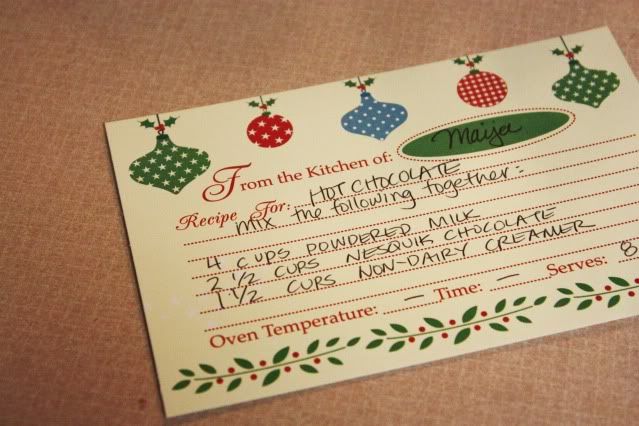 From the Kitchen of: Maija
Recipe For: HOT CHOCOLATE
mix the following together:
4 CUPS POWDERED MILK
2 1/2 CUPS NESQUIK CHOCOLATE
1 1/2 CUPS NON-DAIRY CREAMER
Oven Temperature: — Time: — Serves: 8